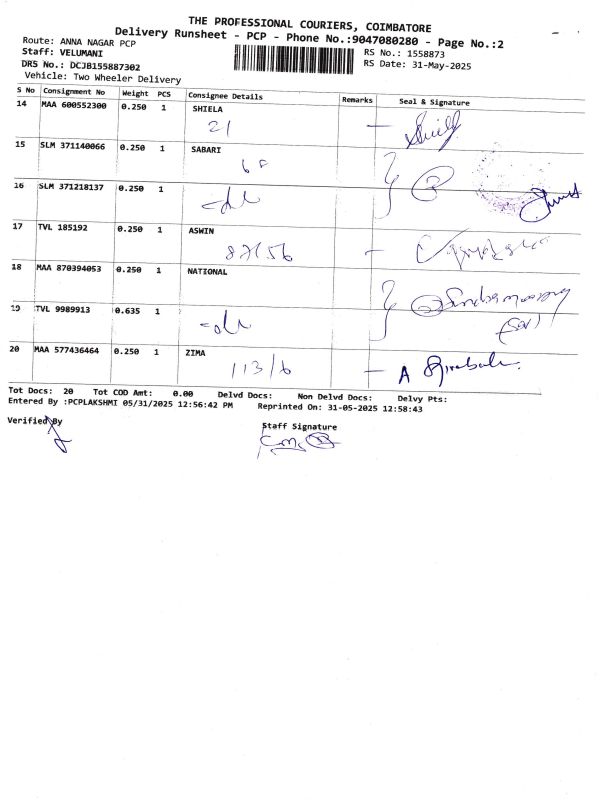 THE PROFESSIONAL COURIERS, COIMBATORE
Delivery Runsheet - PCP - Phone No.:9047080280 - Page No.:2
Route: ANNA NAGAR PCP
RS No.: 1558873
Staff: VELUMANI
RS Date: 31-May-2025
DRS No.: DCJB155887302
Vehicle: Two Wheeler Delivery
S No Consignment No Weight PCS Consignee Details Remarks Seal & Signature
14 MAA 600552300 0.250 1 SHIELA
21
15 SLM 371140066 0.250 1 SABARI
16 SLM 371218137 0.250 1
17 TVL 185192 0.250 1 ASWIN
18 MAA 870394053 0.250 1 NATIONAL
19 TVL 9989913 0.635 1
20 MAA 577436464 0.250 1 ZIMA
113/6
Tot Docs: 20 Tot COD Amt: 0.00 Delvd Docs: Non Delvd Docs: Delvy Pts:
Entered By :PCPLAKSHMI 05/31/2025 12:56:42 PM Reprinted On: 31-05-2025 12:58:43
Verified By
Staff Signature